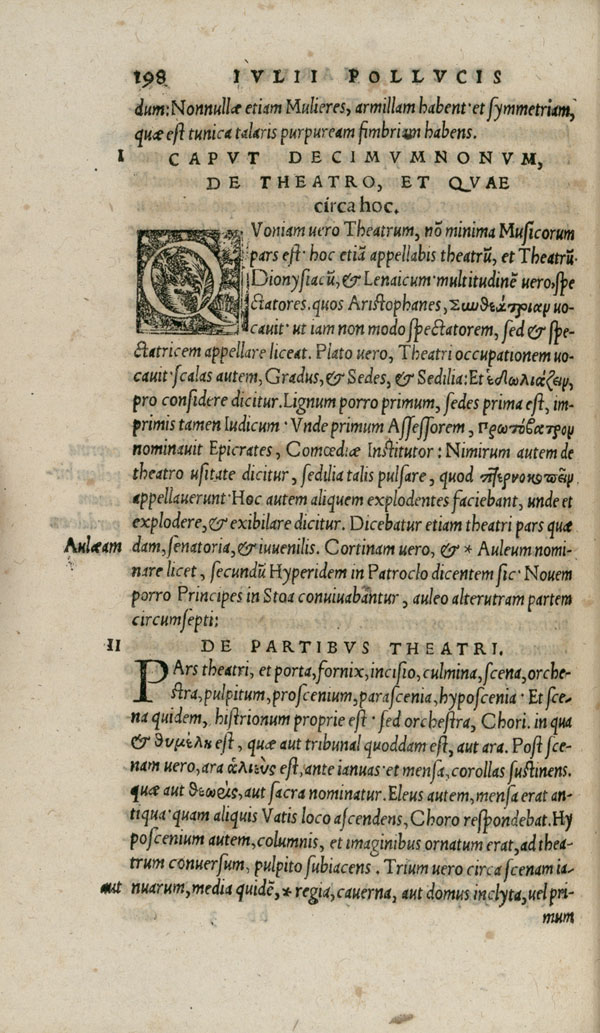 198 IVLII POLLVCIS
dum: Nonnullæ etiam Mulieres, armillam habent· et symmetriam,
quæ est tunica talaris purpuream fimbriam habens.
I CAPVT DECIMVMNONVM,
DE THEATRO, ET QVAE
circa hoc.
QVoniam uero Theatrum, nõ minima Musicorum
pars est· hoc etiã appellabis theatrũ, et Theatrũ·
Dionysiacũ, & Lenaicum· multitudinẽ uero, spe
ctatores. quos Aristophanes, Συνθεάτριαν uo-
cauit· ut iam non modo spectatorem, sed & spe-
ctatricem appellare liceat. Plato uero, Theatri occupationem uo-
cauit· scalas autem, Gradus, & Sedes, & Sedilia: Et ἑδωλιάζειν,
pro considere dicitur. Lignum porro primum, sedes prima est, im-
primis tamen Iudicum· Vnde primum Assessorem, πρωτόβαθρον
nominauit Epicrates, Comœdiæ Institutor: Nimirum autem de
theatro usitate dicitur, sedilia talis pulsare, quod πτερνοκοπεῖν
appellauerunt· Hoc autem aliquem explodentes faciebant, unde et
explodere, & exibilare dicitur. Dicebatur etiam theatri pars quæ
Aulæam dam, senatoria, & iuuenilis. Cortinam uero, & * Auleum nomi-
nare licet, secundũ Hyperidem in Patroclo dicentem sic· Nouem
porro Principes in Stoa conuiuabantur, auleo alterutram partem
circumsepti:
II DE PARTIBVS THEATRI.
PArs theatri, et porta, fornix, incisio, culmina, scena, orche-
stra, pulpitum, proscenium, parascenia, hyposcenia· Et sce-
na quidem, histrionum proprie est· sed orchestra, Chori. in qua
& θυμέλη est, quæ aut tribunal quoddam est, aut ara. Post sce-
nam uero, ara ἀλιεὺς est, ante ianuas· et mensa, corollas sustinens.
quæ aut θεωρὶς, aut sacra nominatur. Eleus autem, mensa erat an-
tiqua· quam aliquis Vatis loco ascendens, Choro respondebat. Hy
poscenium autem, columnis, et imaginibus ornatum erat, ad thea-
trum conuersum, pulpito subiacens. Trium uero circa scenam ia-
aut nuarum, media quidẽ, * regia, cauerna, aut domus inclyta, uel pri-
mum